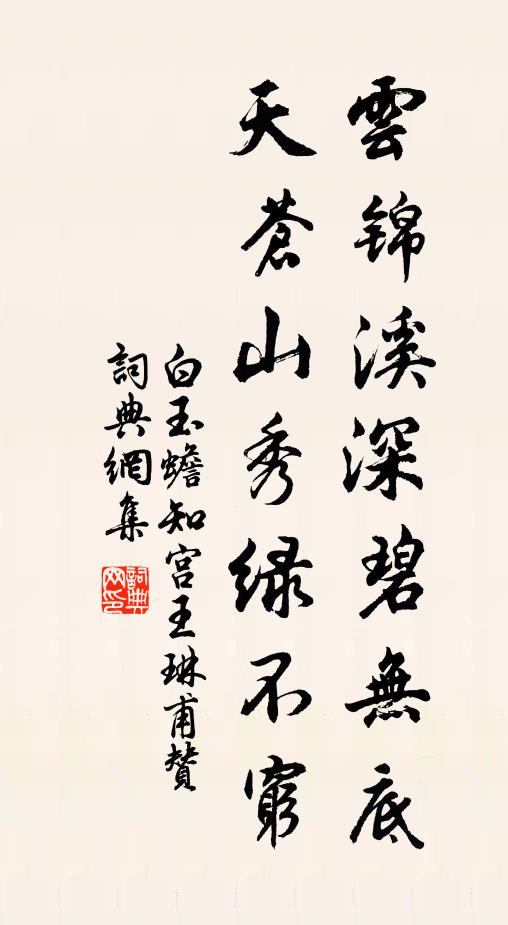 雲锦溪深碧無底
天蒼山秀绿不窮
白玉蟾知宫王琳甫贊
詞典網集
詞典網印